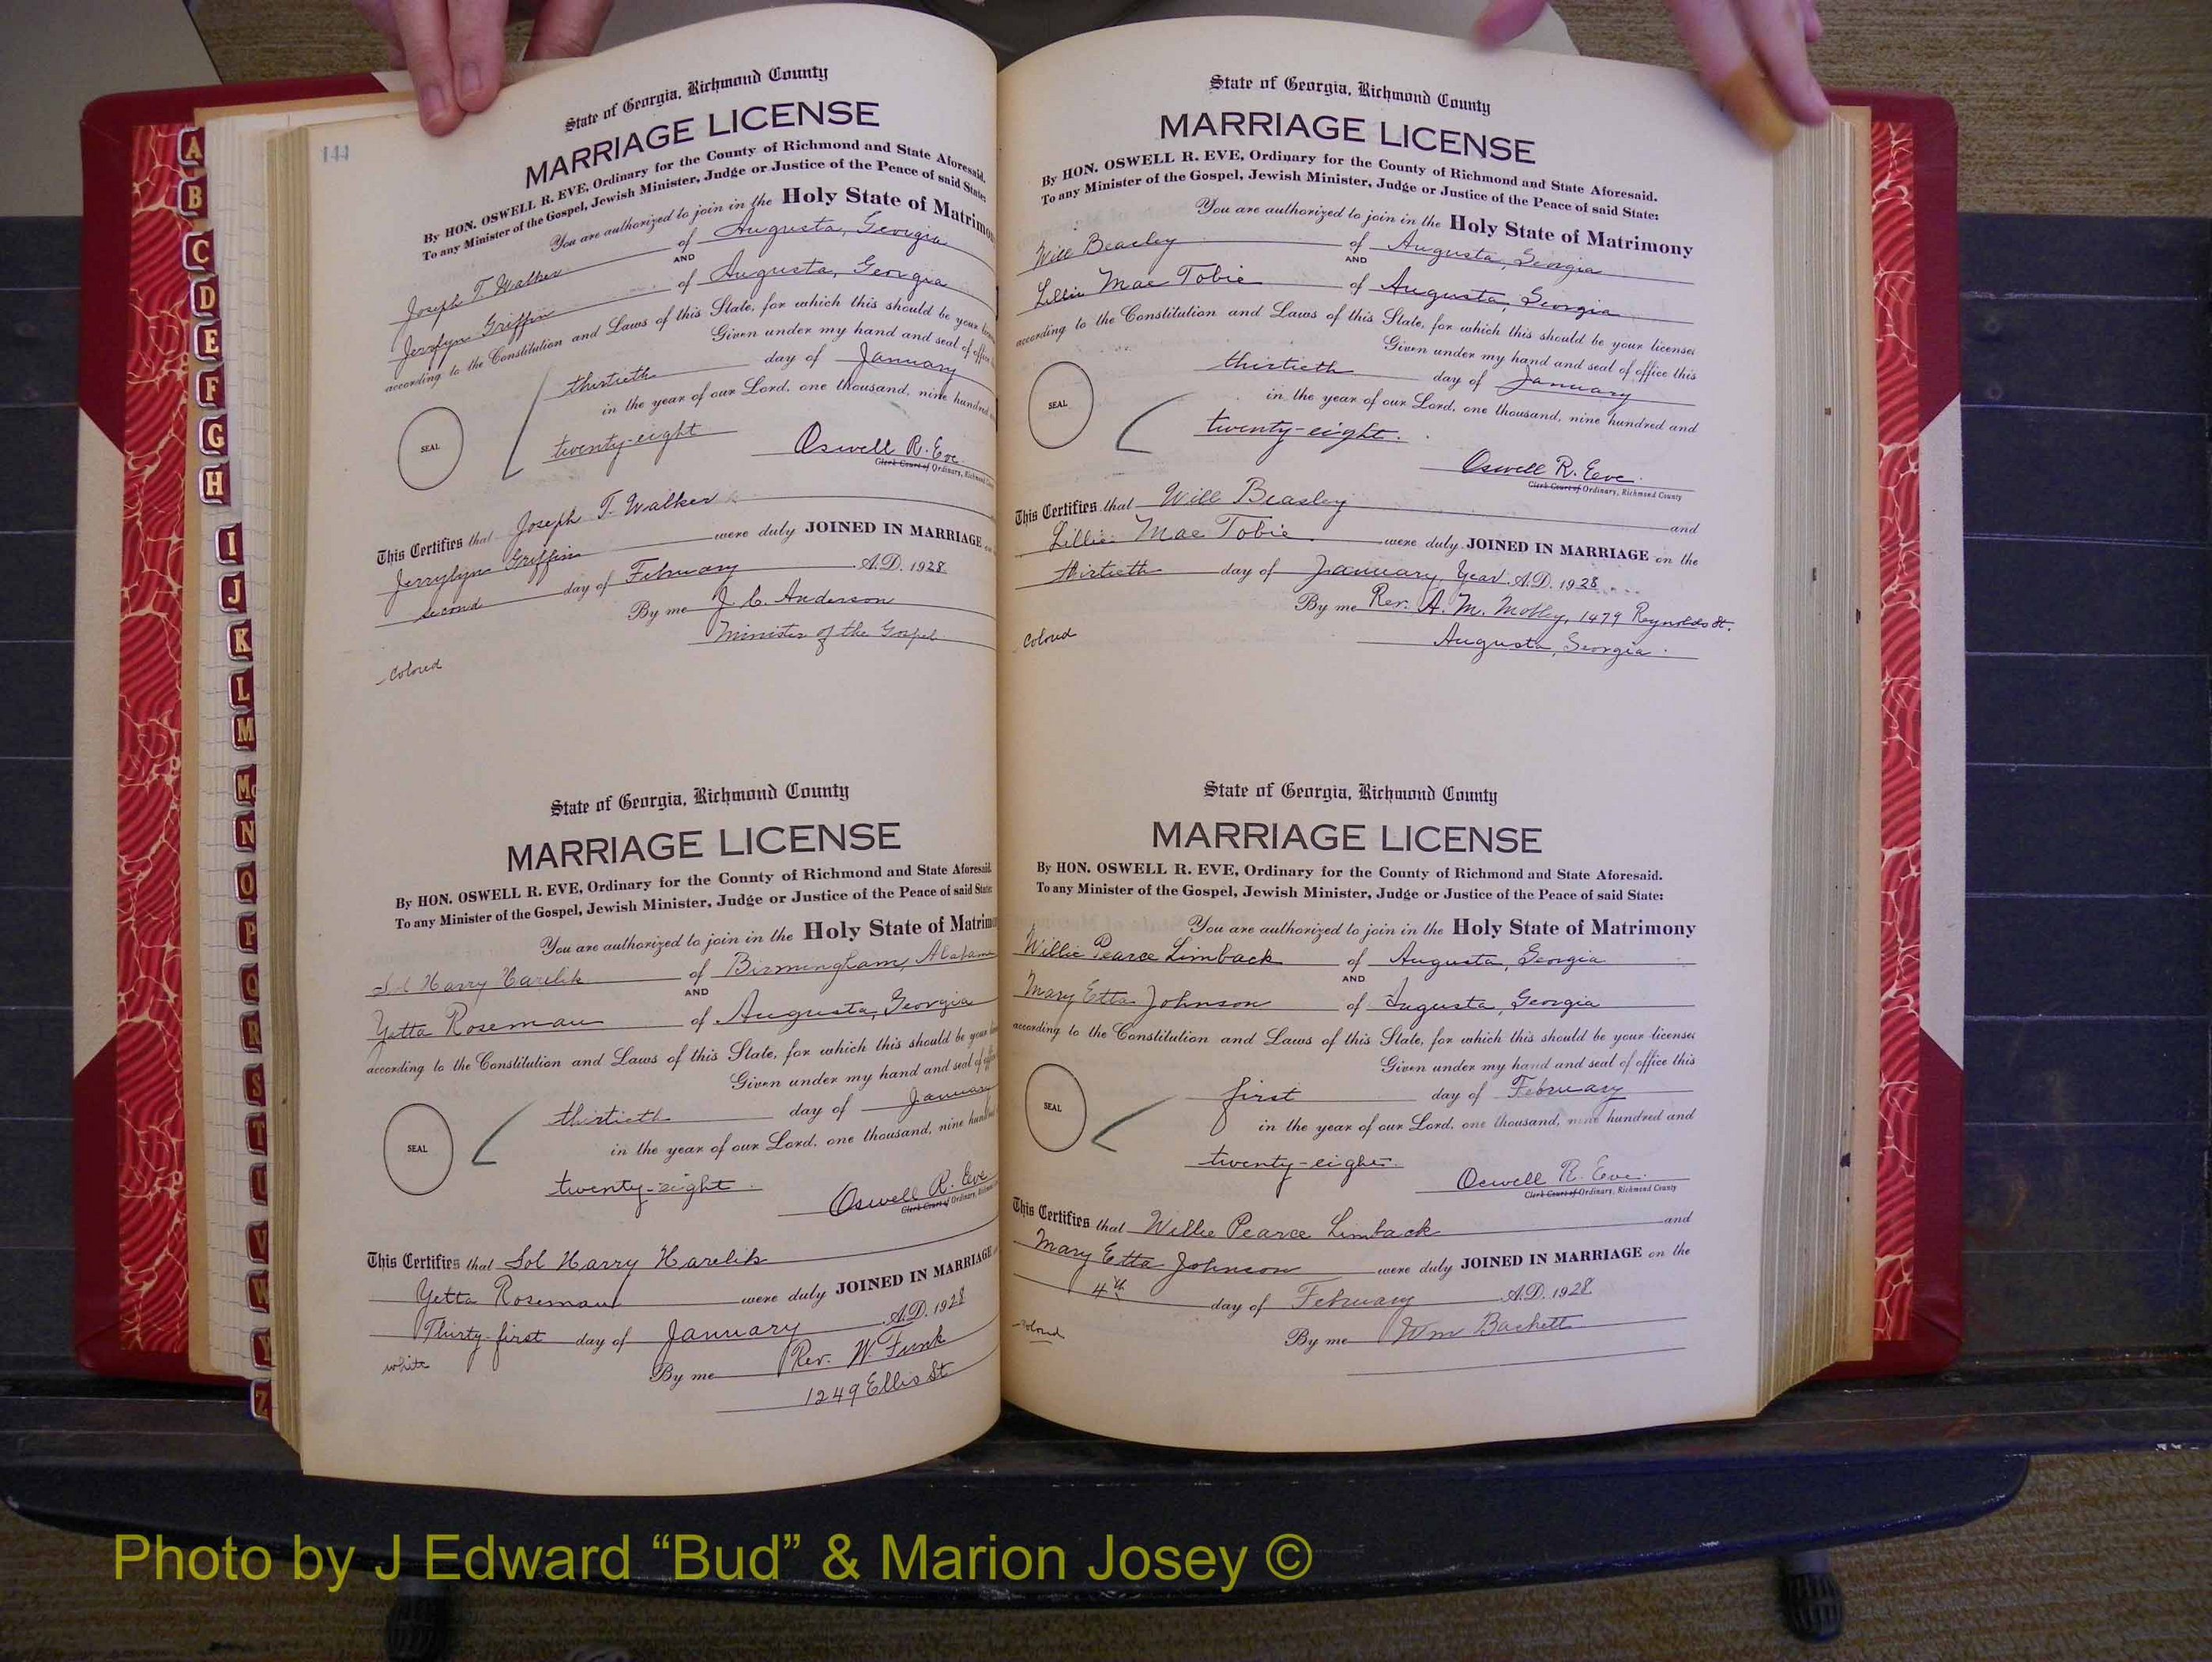 144
A
B
C
D
E
F
G
H
I
J
K
L
M
Mc
N
O
P
Q
R
S
T
U
V
W
Y
Z
State of Georgia, Richmond County
MARRIAGE LICENSE
By HON. OSWELL R. EVE, Ordinary for the County of Richmond and State Aforesaid.
To any Minister of the Gospel, Jewish Minister, Judge or Justice of the Peace of said State:
You are authorized to join in the Holy State of Matrimony
Joseph T. Walker of Augusta, Georgia
AND
Jerrlyn Griffin of Augusta, Georgia
according to the Constitution and Laws of this State, for which this should be your
Given under my hand and seal of office
thirtieth day of January
in the year of our Lord, one thousand, nine hundred
twenty-eight
Oswell R. Eve
Clerk Court of Ordinary, Richmond
SEAL
This Certifies that Joseph T. Walker
Jerrylyn Griffin were duly JOINED IN MARRIAGE
second day of February A.D. 1928
By me J. C. Anderson
Minister of the Gospel
Colored
State of Georgia, Richmond County
MARRIAGE LICENSE
By HON. OSWELL R. EVE, Ordinary for the County of Richmond and State Aforesaid.
To any Minister of the Gospel, Jewish Minister, Judge or Justice of the Peace of said State:
You are authorized to join in the Holy State of Matrimo
Sol Harry Harelik of Birmingham, Alabama
AND
Yetta Roseman of Augusta, Georgia
according to the Constitution and Laws of this State, for which this should be your
Given under my hand and seal of
thirtieth day of January
in the year of our Lord, one thousand, nine
twenty-eight
Oswell R. Eve
Clerk Court of Ordinary,
SEAL
This Certifies that Sol Harry Harelik
Yetta Roseman were duly JOINED IN MARRIAGE
Thirty-first day of January A.D. 1928
By me Rev. W. Funk
1249 Ellis St
white
State of Georgia, Richmond County
MARRIAGE LICENSE
By HON. OSWELL R. EVE, Ordinary for the County of Richmond and State Aforesaid.
To any Minister of the Gospel, Jewish Minister, Judge or Justice of the Peace of said State:
You are authorized to join in the Holy State of Matrimony
Will Beasley of Augusta, Georgia
AND
Lillie Mae Tobie of Augusta, Georgia
according to the Constitution and Laws of this State, for which this should be your license:
Given under my hand and seal of office this
thirtieth day of January
in the year of our Lord, one thousand, nine hundred and
twenty-eight.
Oswell R. Eve.
Clerk Court of Ordinary, Richmond County
SEAL
This Certifies that Will Beasley and
Lillie Mae Tobie were duly JOINED IN MARRIAGE on the
thirtieth day of January, Year A.D. 1928
By me Rev. A. M. Mobley, 1479 Reynolds St.
Augusta, Georgia.
Colored
State of Georgia, Richmond County
MARRIAGE LICENSE
By HON. OSWELL R. EVE, Ordinary for the County of Richmond and State Aforesaid.
To any Minister of the Gospel, Jewish Minister, Judge or Justice of the Peace of said State:
You are authorized to join in the Holy State of Matrimony
Willie Pearce Limback of Augusta, Georgia
AND
Mary Etta Johnson of Augusta, Georgia
according to the Constitution and Laws of this State, for which this should be your license:
Given under my hand and seal of office this
first day of February
in the year of our Lord, one thousand, nine hundred and
twenty-eight.
Oswell R. Eve.
Clerk Court of Ordinary, Richmond County
SEAL
This Certifies that Willie Pearce Limback and
Mary Etta Johnson were duly JOINED IN MARRIAGE on the
4th day of February A.D. 1928
By me Wm Backett
Colored
Photo by J Edward “Bud” & Marion Josey ©